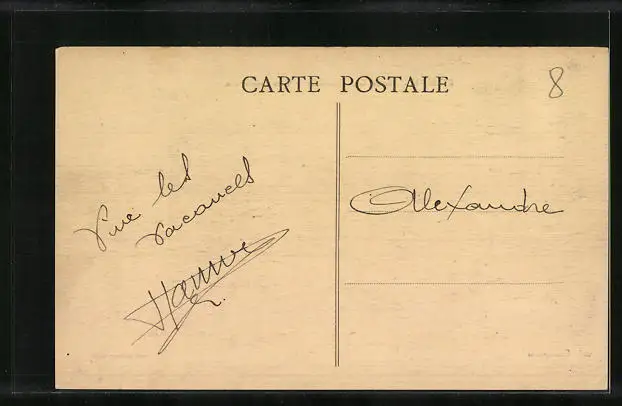 CARTE POSTALE
8
Vive les
vacances
Alexandre